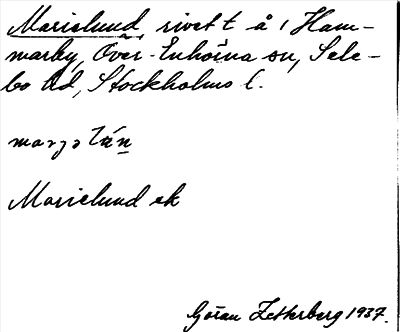 Marielund, rivet t å i Ham-
marby, Över-Enhörna sn, Sele-
bo hd, Stockholms l.
Marielund ek
Göran Zetterberg 1937.